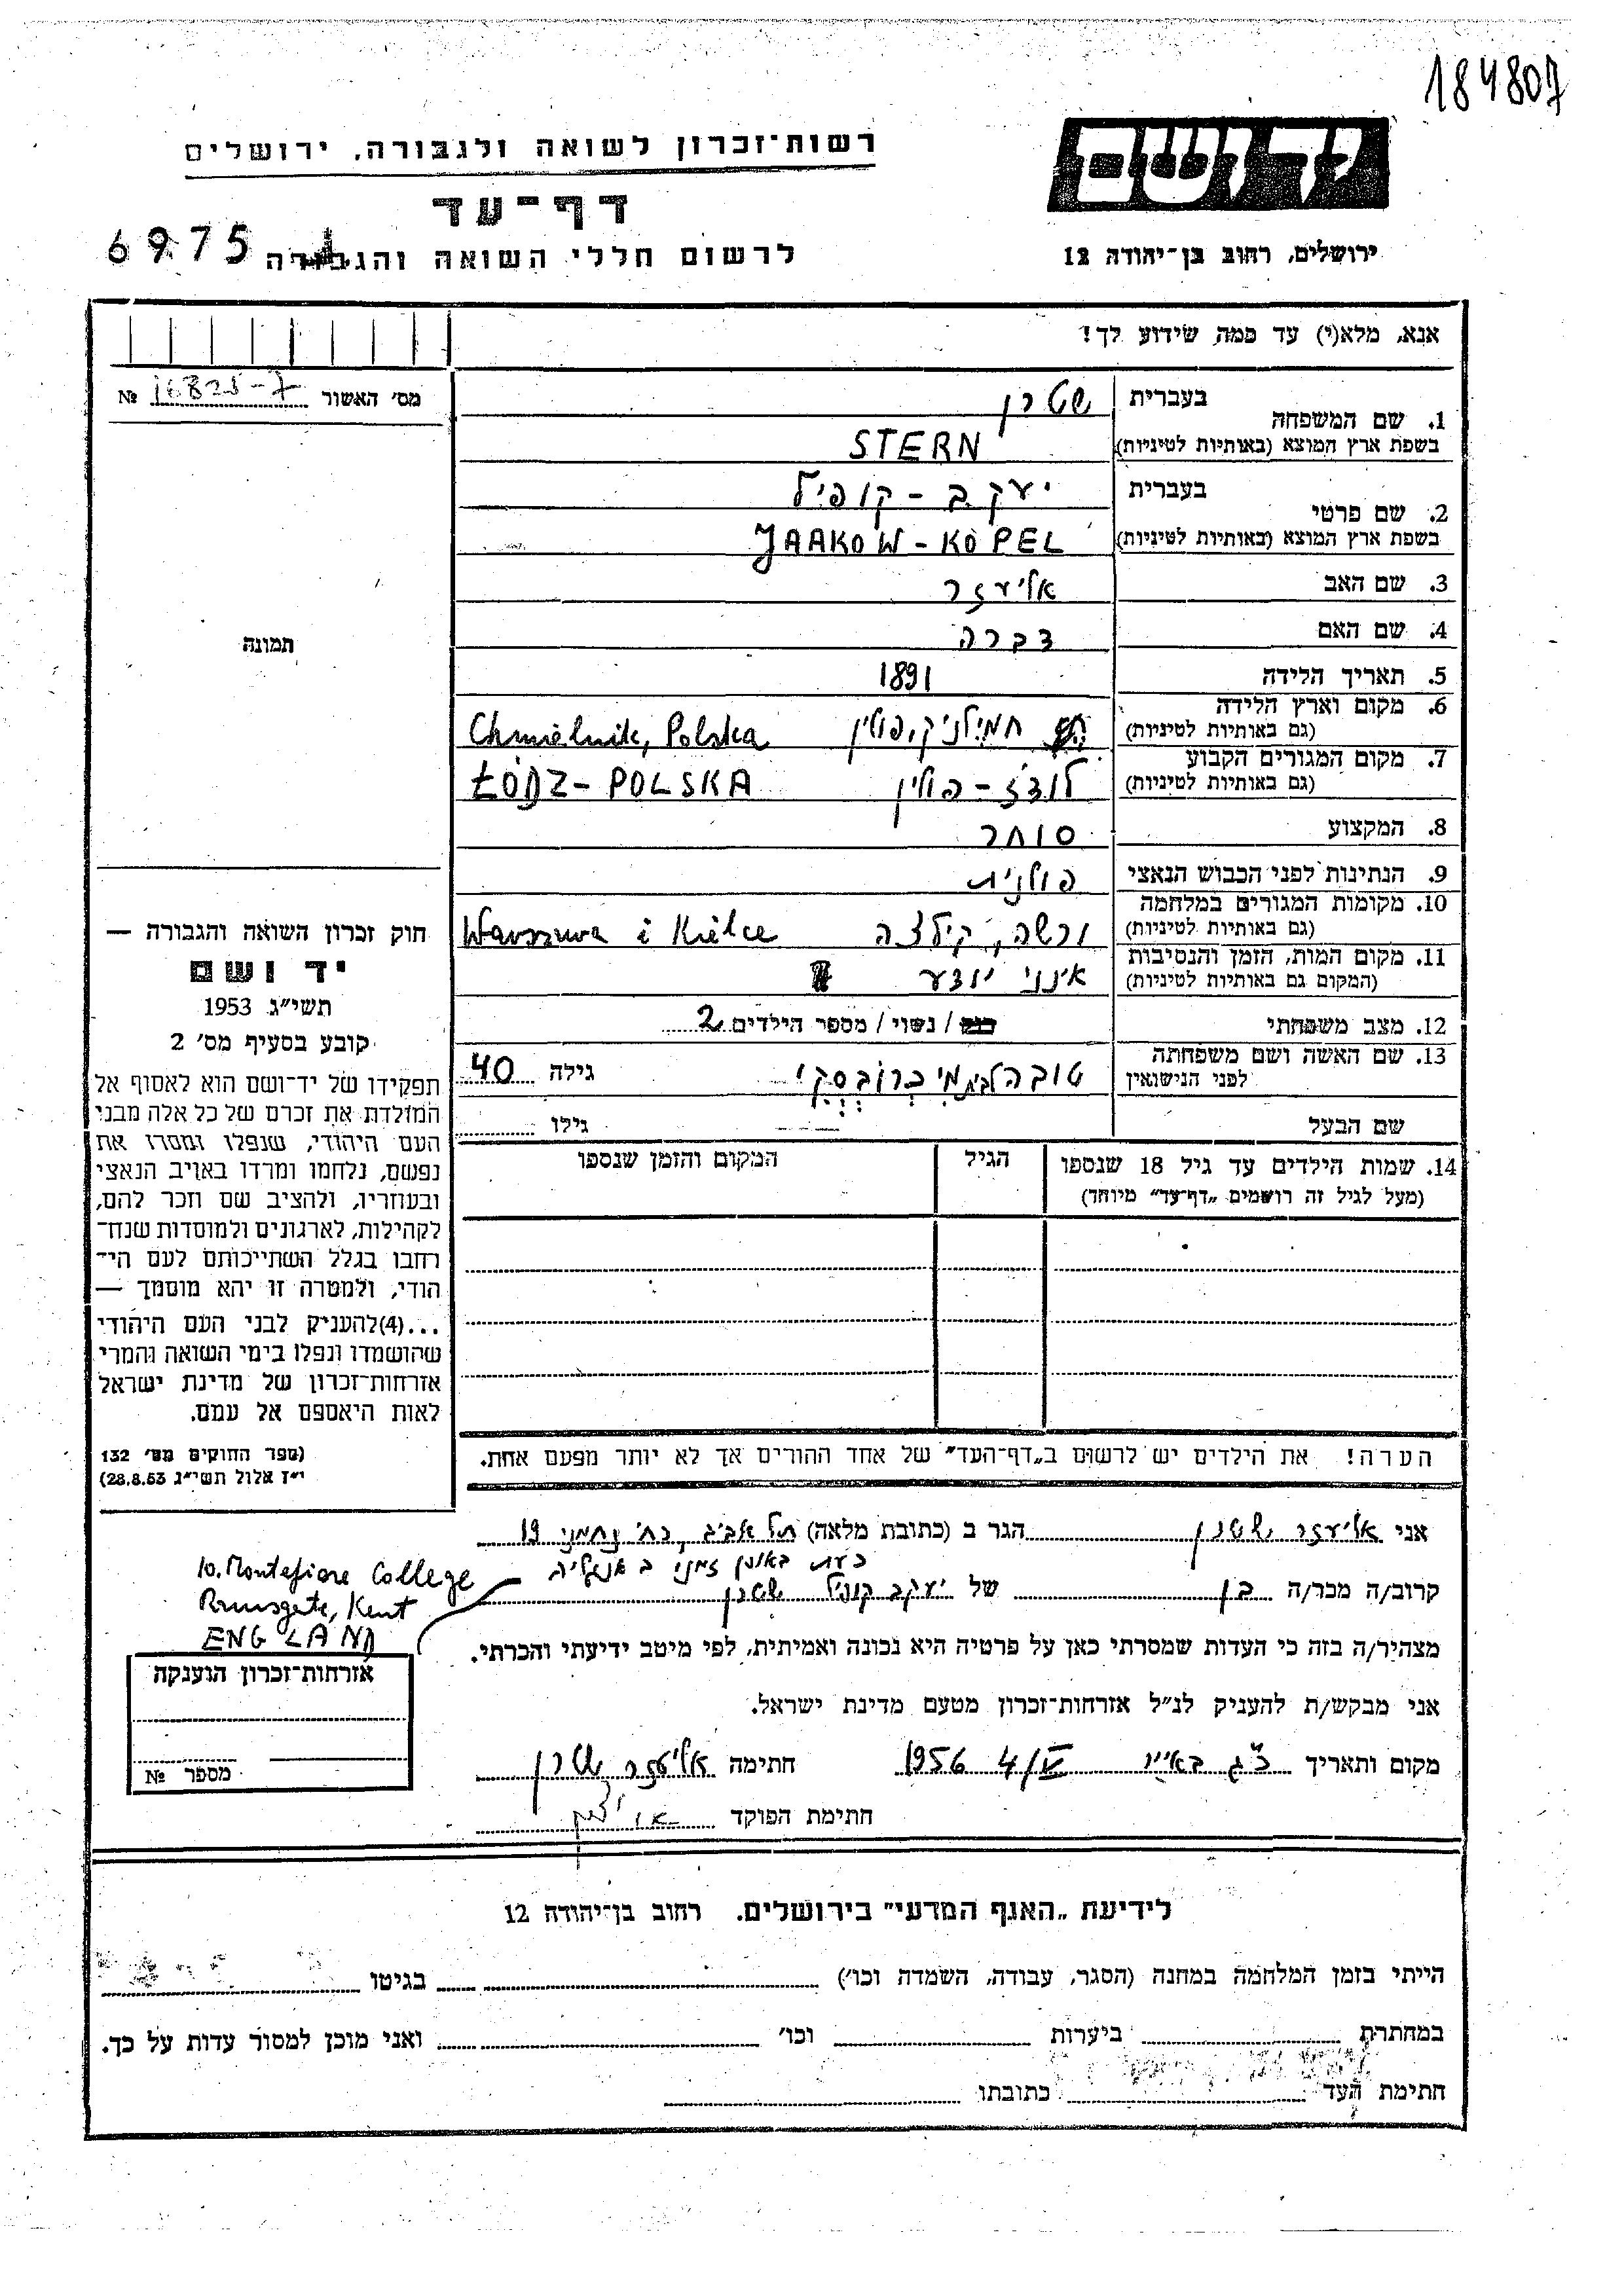 184807
רשות־זכרון לשואה ולגבורה, ירושלים
יד ושם
דף־עד
לרשום חללי השואה והגבורה
6975
ירושלים, רחוב בן־יהודה 12
אנא, מלא(י) עד כמה שידוע לך!
מס׳ האשור № 16825-7
1. שם המשפחה
בעברית שטרן
בשפת ארץ המוצא (באותיות לטיניות) STERN
2. שם פרטי
בעברית יעקב - קופיל
בשפת ארץ המוצא (באותיות לטיניות) JAAKOW - KOPEL
3. שם האב אליעזר
4. שם האם דברה
5. תאריך הלידה 1891
6. מקום וארץ הלידה
(גם באותיות לטיניות) חמילניק, פולין Chmielnik, Polska
7. מקום המגורים הקבוע
(גם באותיות לטיניות) לודז - פולין ŁÓDZ - POLSKA
8. המקצוע סוחר
9. הנתינות לפני הכבוש הנאצי פולנית
10. מקומות המגורים במלחמה
(גם באותיות לטיניות) ורשה, קילצה Warszwa i Kielce
11. מקום המות, הזמן והנסיבות
(המקום גם באותיות לטיניות) אינני יודע
12. מצב משפחתי רוק / נשוי / מספר הילדים 2
13. שם האשה ושם משפחתה
לפני הנישואין טובה לבית מיברובסקי גילה 40
שם הבעל גילו
14. שמות הילדים עד גיל 18 שנספו
(מעל לגיל זה רושמים „דף־עד״ מיוחד)
הגיל
המקום והזמן שנספו
הערה! את הילדים יש לרשום ב„דף־העד״ של אחד ההורים אך לא יותר מפעם אחת.
תמונה
חוק זכרון השואה והגבורה —
יד ושם
תשי״ג 1953
קובע בסעיף מס׳ 2
תפקידו של יד־ושם הוא לאסוף אל
המולדת את זכרם של כל אלה מבני
העם היהודי, שנפלו ומסרו את
נפשם, נלחמו ומרדו באויב הנאצי
ובעוזריו, ולהציב שם וזכר להם,
לקהילות, לארגונים ולמוסדות שנח־
רבו בגלל השתייכותם לעם הי־
הודי, ולמטרה זו יהא מוסמך —
...(4)להעניק לבני העם היהודי
שהושמדו ונפלו בימי השואה והמרי
אזרחות־זכרון של מדינת ישראל
לאות היאספם אל עמם.
(ספר החוקים מס׳ 132
י״ז אלול תשי״ג 28.8.53)
אני אליעזר שטרן הגר ב (כתובת מלאה) תל אביב, רח׳ נחמני 19
כעת באופן זמני באנגליה
10. Montefiore College
Ramsgate, Kent
ENGLAND
קרוב/ה מכר/ה בן של יעקב קופיל שטרן
מצהיר/ה בזה כי העדות שמסרתי כאן על פרטיה היא נכונה ואמיתית, לפי מיטב ידיעתי והכרתי.
אני מבקש/ת להעניק לנ״ל אזרחות־זכרון מטעם מדינת ישראל.
מקום ותאריך כ״ג באייר 4/V 1956 חתימה אליעזר שטרן
חתימת הפוקד
אזרחות־זכרון הוענקה
מספר №
לידיעת „האגף המדעי״ בירושלים. רחוב בן־יהודה 12
הייתי בזמן המלחמה במחנה (הסגר, עבודה, השמדה וכו׳) בגיטו
במחתרת ביערות וכו׳ ואני מוכן למסור עדות על כך.
חתימת העד כתובתו